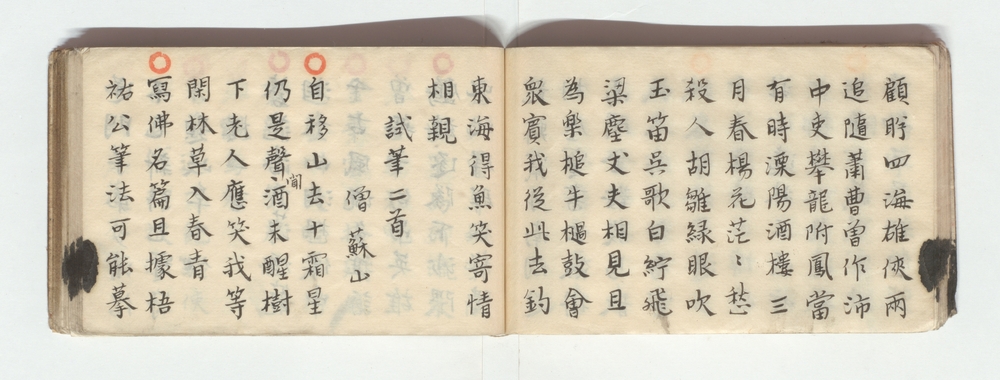 顧盻四海雄俠兩
追隨蕭曹曾作沛
中吏攀龍附鳳當
有時溧陽酒樓三
月春楊花茫〻愁
殺人胡雛緑眼吹
玉笛吳歌白紵飛
梁塵丈夫相見且
為樂槌牛檛鼓會
衆賓我従此去釣
東海得魚笑寄情
相親
試筆二首
僧蘇山
自移山去十霜星
仍是聲聞酒未醒樹
下老人應笑我等
閑林草入春青
寫佛名篇且據梧
祐公筆法可能摹